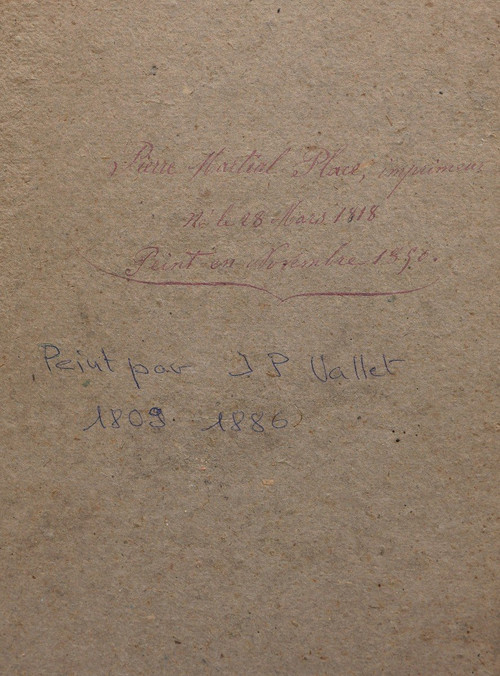 Pierre Martial Place, imprimeur
Né le 28 Mars 1818
Peint en Novembre 1850.
Peint par J P Vallet
1809. 1886